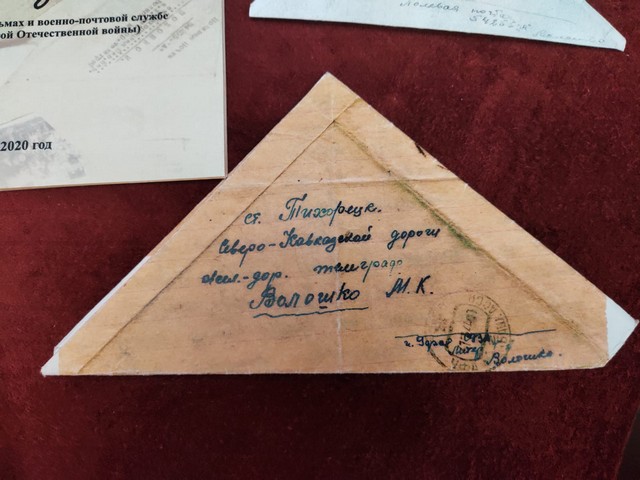 ьмах и военно-почтовой службе
ой Отечественной войны)
2020 год
Полевая почта
ст. Тихорецк.
Северо-Кавказской дороги
жел.-дор. телеграф
Волошко М.К.
Волошко.